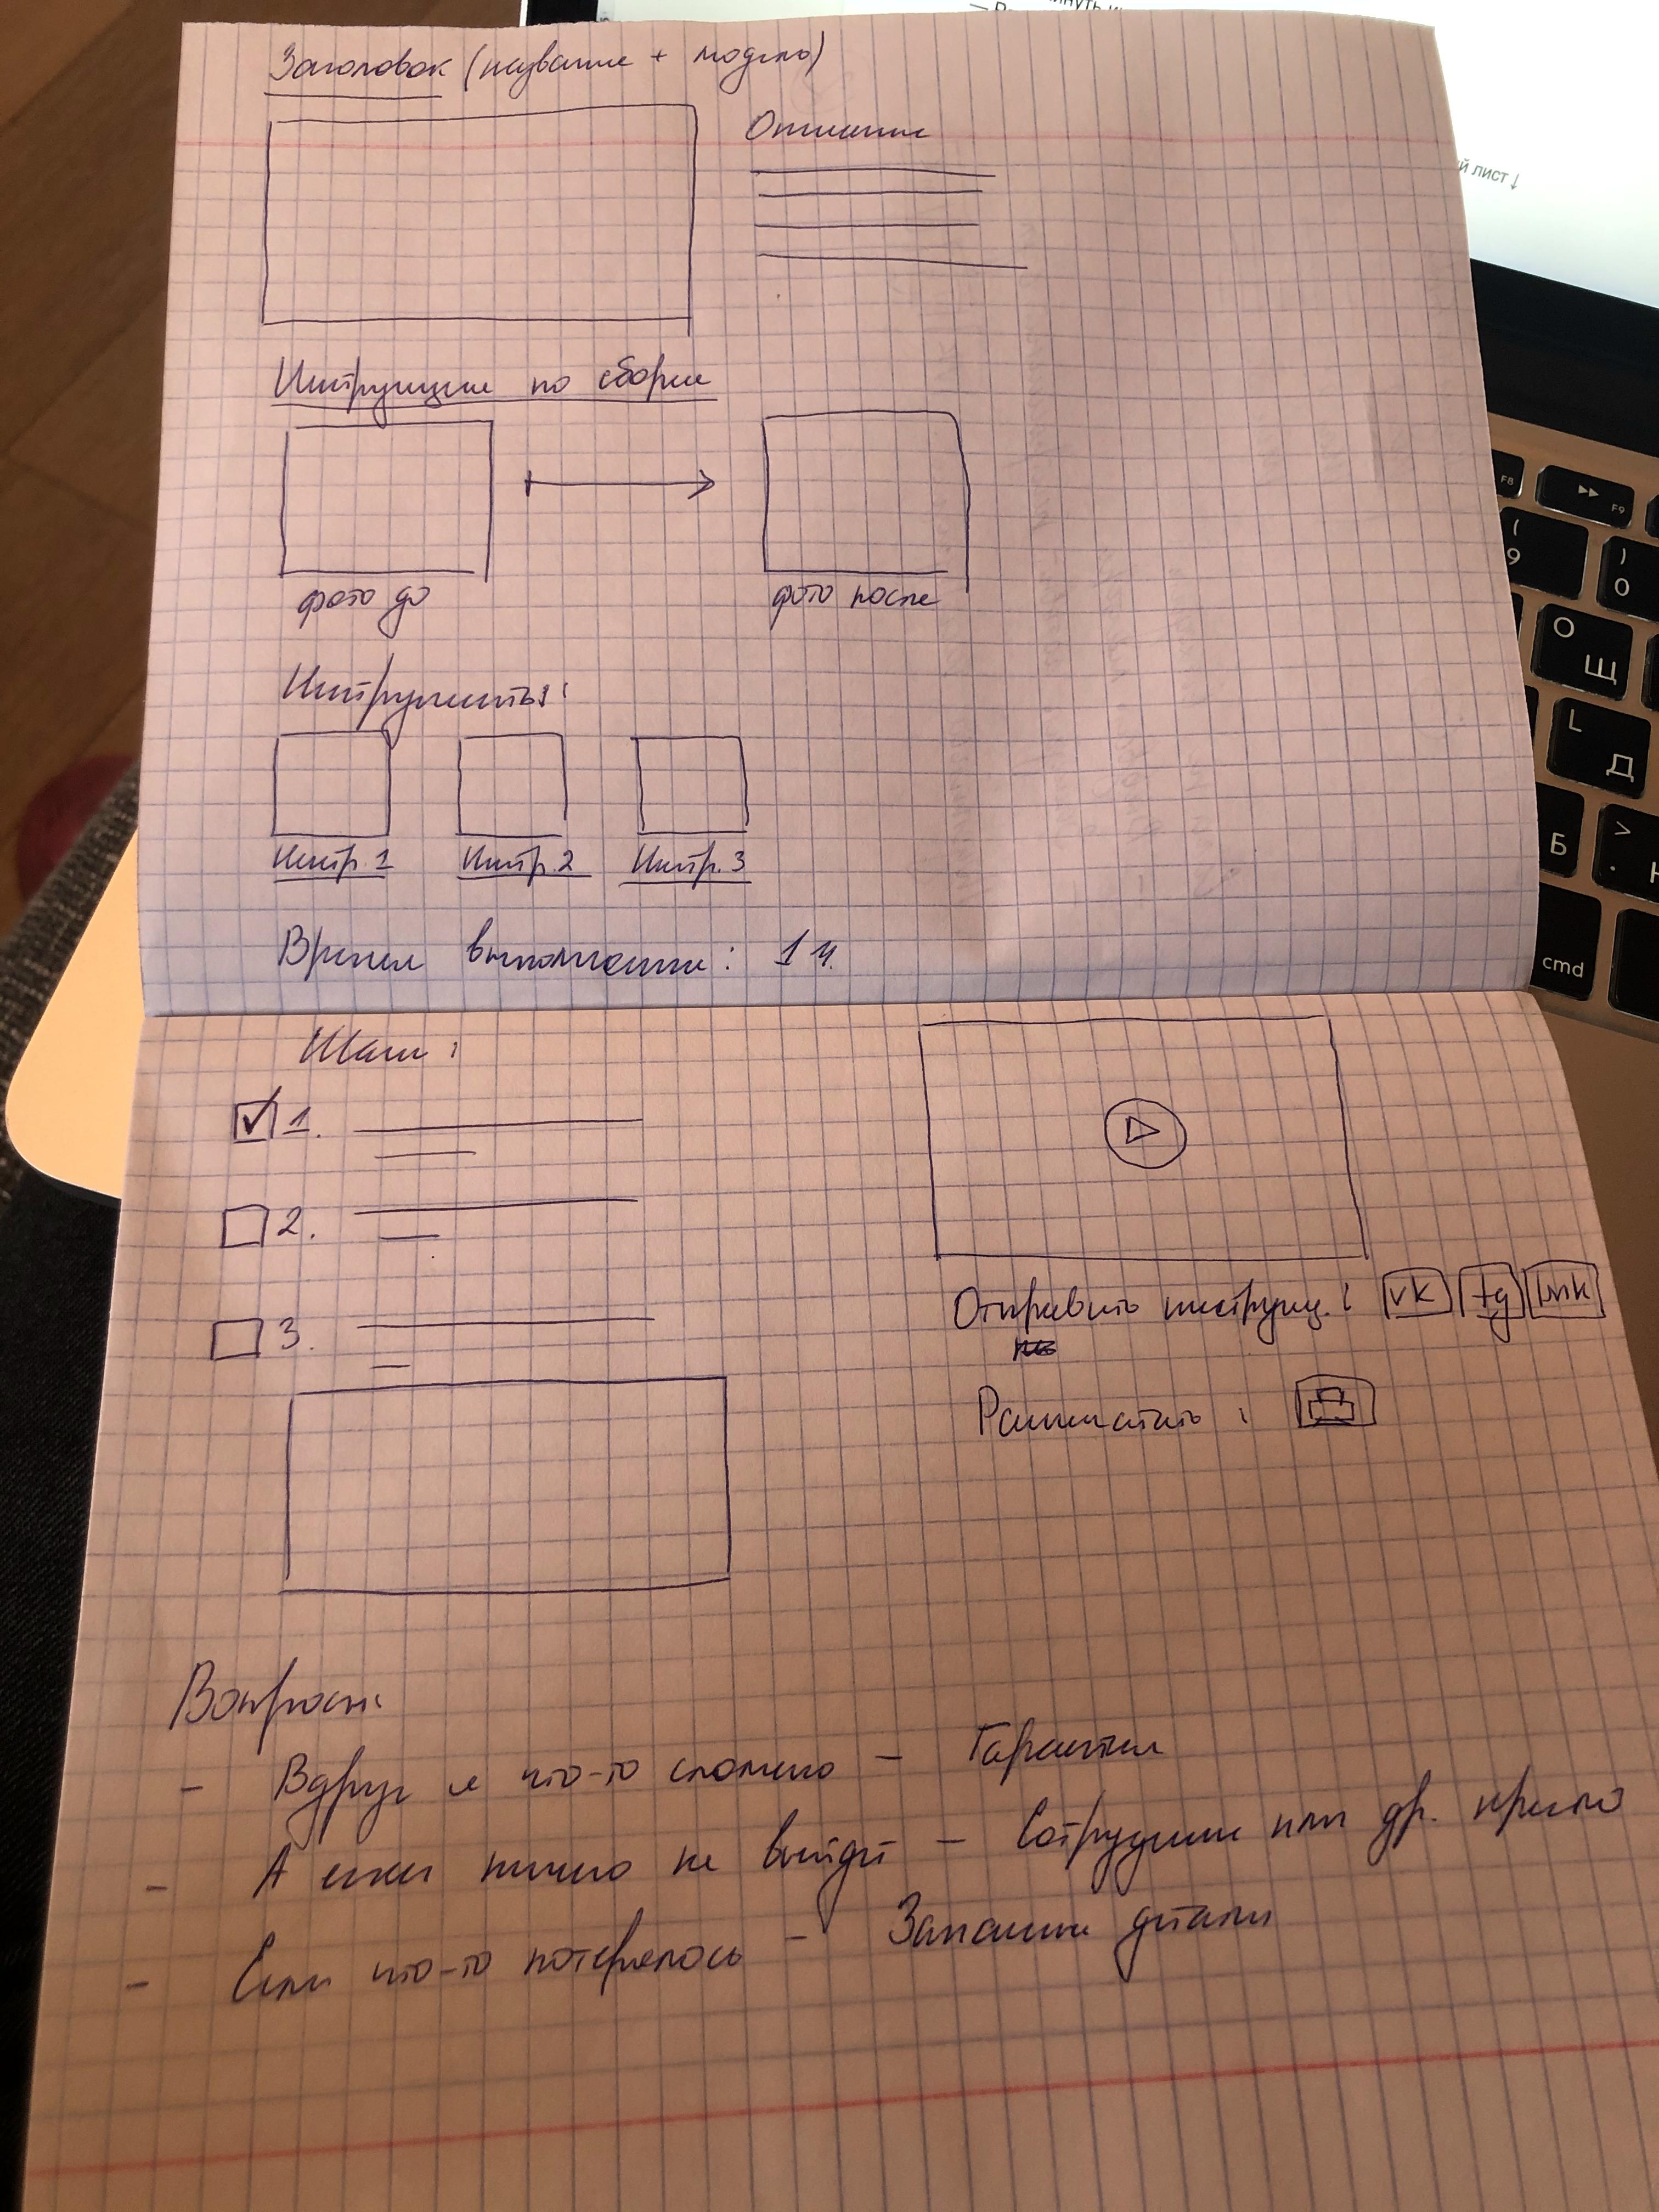 Заголовок (название + модель)
Описание
Инструкции по сборке
фото до
фото после
Инструменты:
Инстр. 1
Инстр. 2
Инстр. 3
Время выполнения: 1 ч.
Шаги:
1.
2.
3.
Отправить инструкц.: vk tg link
Распечатать:
Вопросы:
- Вдруг я что-то сломаю - Гарантия
- А если ничего не выйдет - Сотрудник или др. кресло
- Если что-то потерялось - Запасные детали
й лист ↓
F8
F9
( 9
) 0
О Щ
L Д
Б
> .
cmd